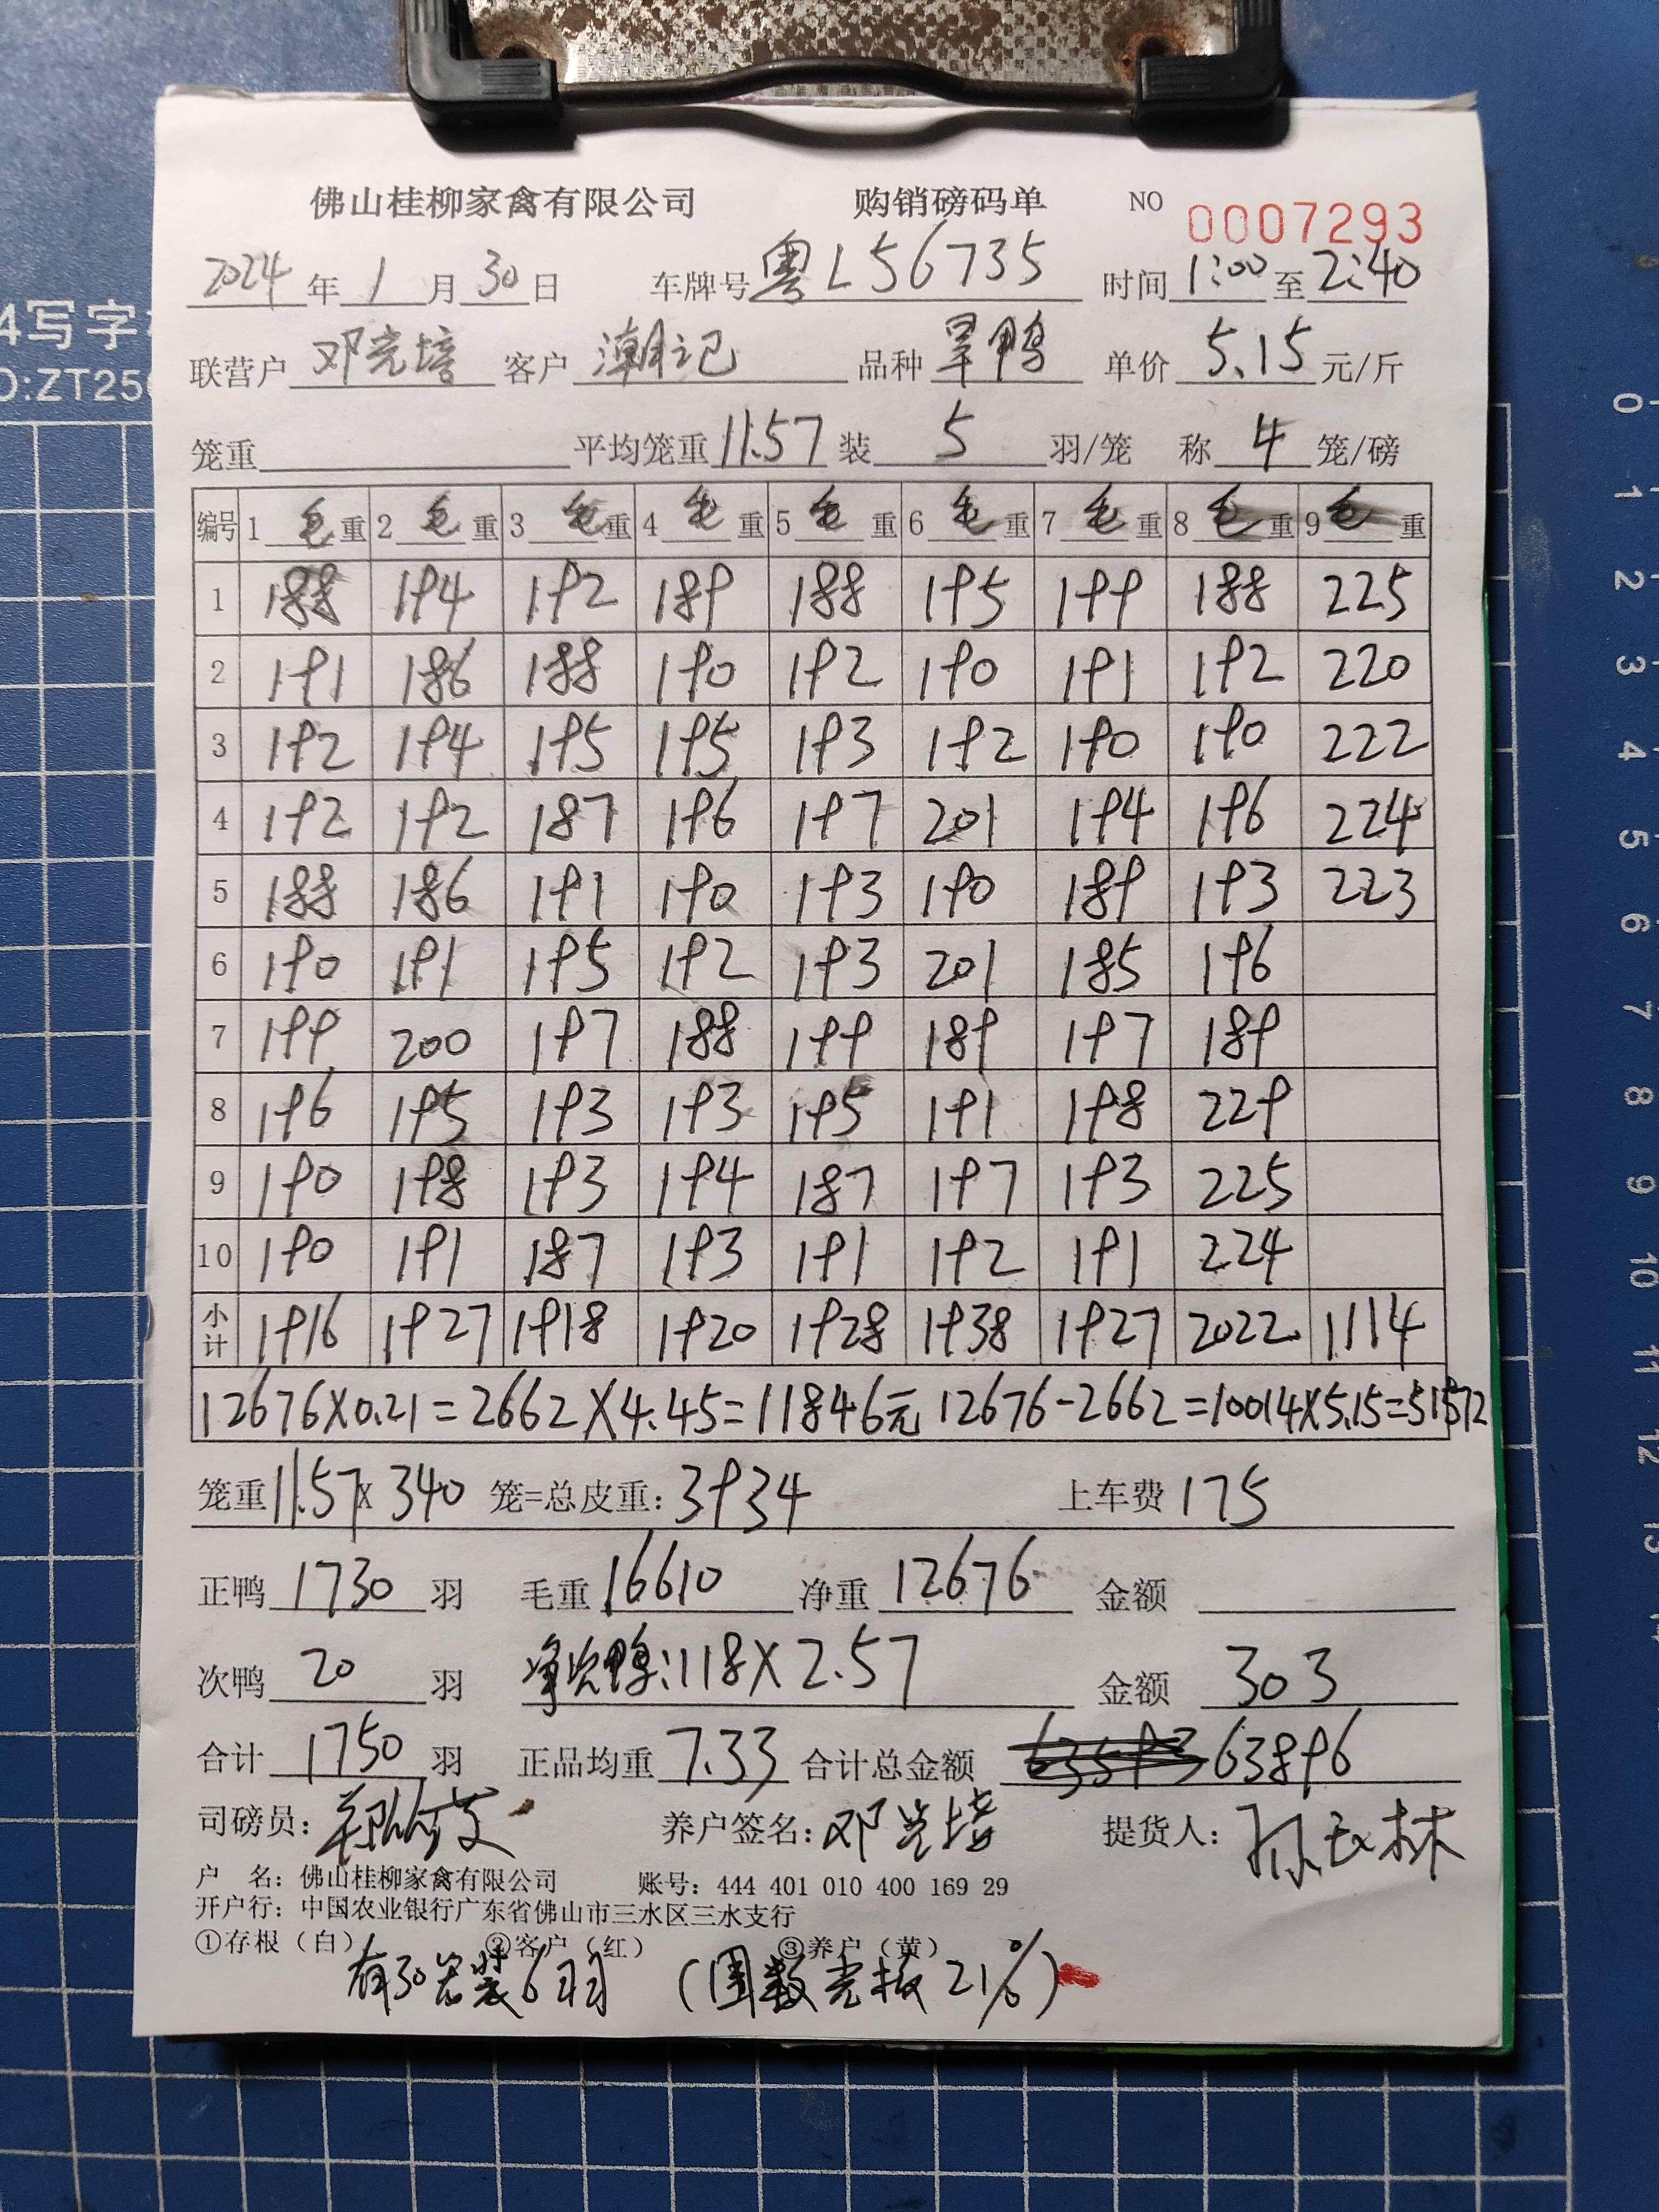 佛山桂柳家禽有限公司 购销磅码单 NO 0007293
2024年1月30日 车牌号粤L56735 时间1:00至2:40
联营户邓光培 客户潮记 品种旱鸭 单价5.15元/斤
笼重 平均笼重11.57装5羽/笼 称4笼/磅
编号 1毛重 2毛重 3毛重 4毛重 5毛重 6毛重 7毛重 8毛重 9毛重
1 188 194 192 189 188 195 199 188 225
2 191 186 188 190 192 190 191 192 220
3 192 194 195 195 193 192 190 190 222
4 192 192 187 196 197 201 194 196 224
5 188 186 191 190 193 190 189 193 223
6 190 191 195 192 193 201 185 196
7 199 200 197 188 199 189 197 189
8 196 195 193 193 195 191 198 229
9 190 198 193 194 187 197 193 225
10 190 191 187 193 191 192 191 224
小计 1916 1927 1918 1920 1928 1938 1927 2022 1114
12676X0.21=2662X4.45=11846元 12676-2662=10014X5.15=51572
笼重11.57X340笼=总皮重:3934 上车费175
正鸭1730羽 毛重16610净重12676 金额
次鸭20羽 净次鸭:118X2.57 金额303
合计1750羽 正品均重7.33合计总金额 63593 63896
司磅员: 养户签名:邓光培 提货人:
户 名:佛山桂柳家禽有限公司 账号:444 401 010 400 169 29
开户行:中国农业银行广东省佛山市三水区三水支行
①存根(白) ②客户(红) ③养户(黄)
有30笼装6羽 (围数光板21%)
4写字
O:ZT25
0
1
2
3
4
5
6
7
8
9
10
11
12
13